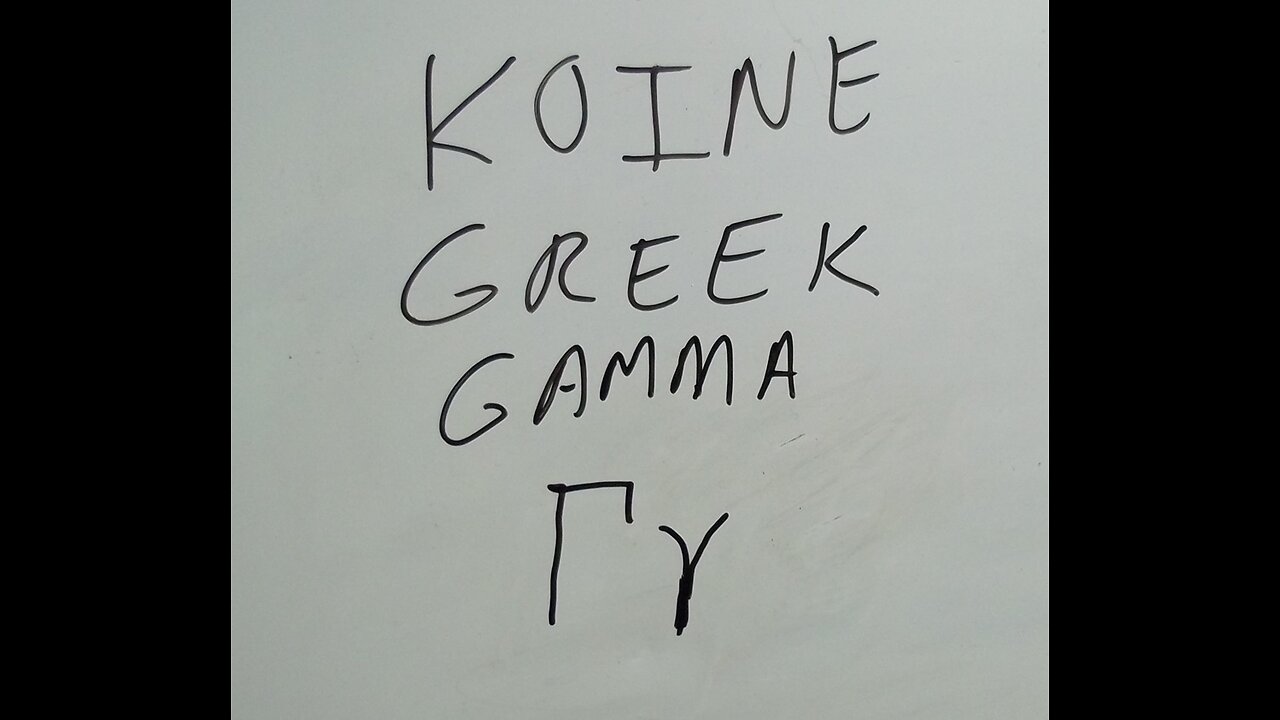 KOINE
GREEK
GAMMA
Γγ